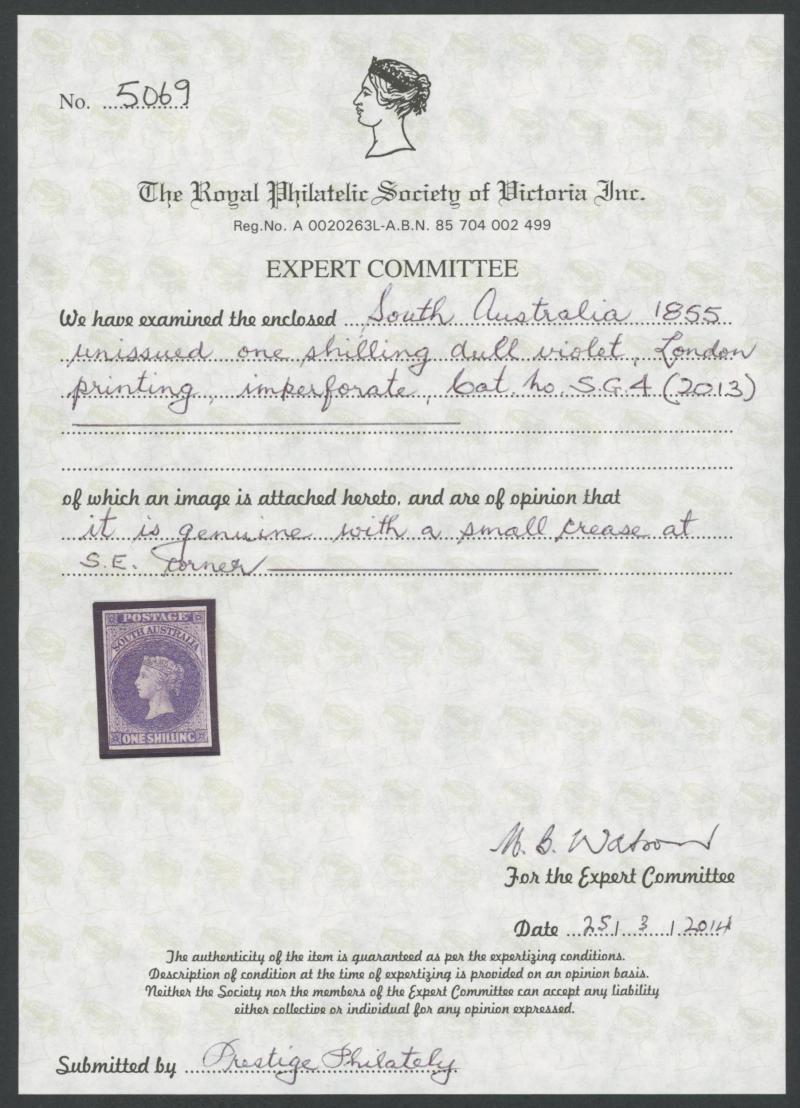 No. 5069
The Royal Philatelic Society of Victoria Inc.
Reg.No. A 0020263L-A.B.N. 85 704 002 499
EXPERT COMMITTEE
We have examined the enclosed South Australia 1855
unissued one shilling dull violet, London
printing, imperforate, Cat. no. S.G.4 (2013)
of which an image is attached hereto, and are of opinion that
it is genuine with a small crease at
S.E. corner
POSTAGE
SOUTH AUSTRALIA
ONE SHILLING
M. B. Watson
For the Expert Committee
Date 25 / 3 / 2014
The authenticity of the item is guaranteed as per the expertizing conditions.
Description of condition at the time of expertizing is provided on an opinion basis.
Neither the Society nor the members of the Expert Committee can accept any liability
either collective or individual for any opinion expressed.
Submitted by Prestige Philately